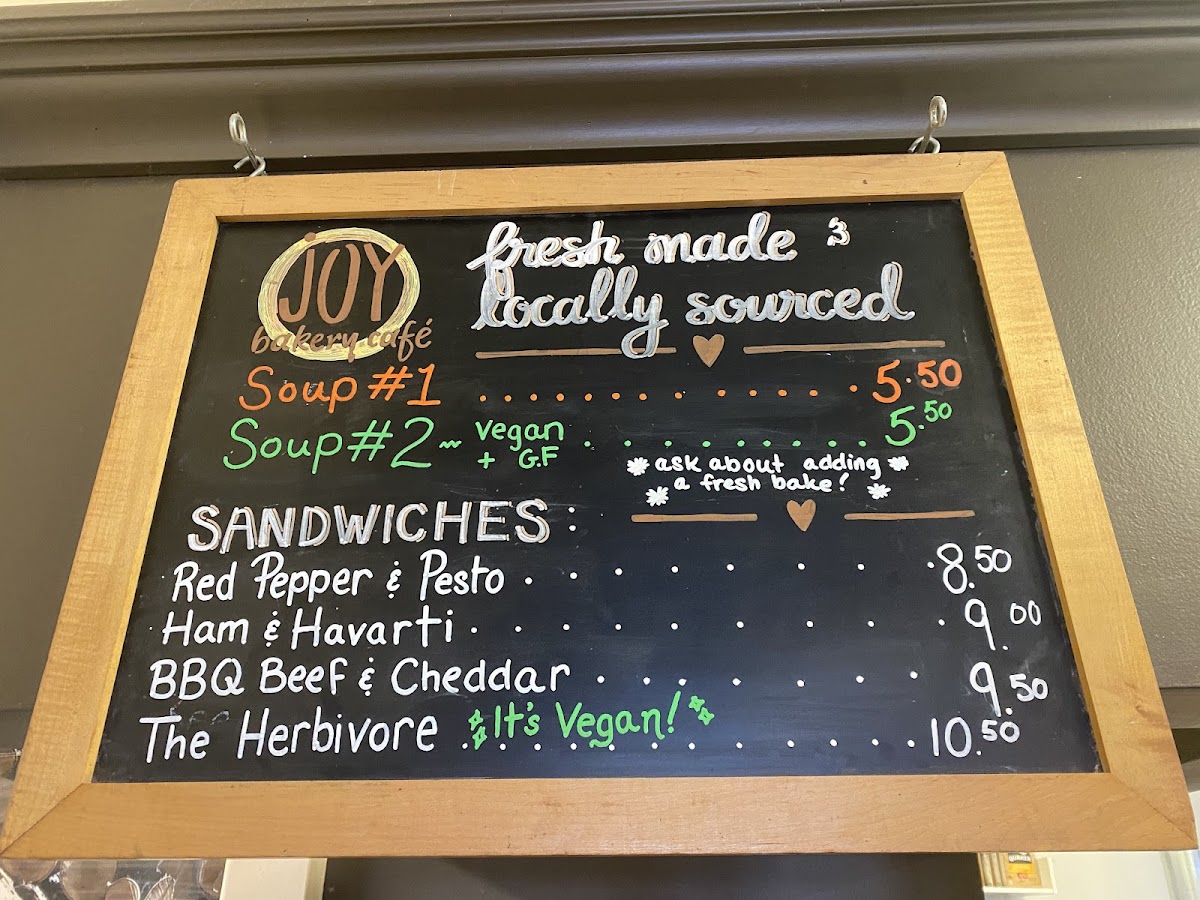 JOY
bakery.café
fresh made &
locally sourced
Soup #1 ............. 5.50
Soup #2 ~ vegan + G.F ......... 5.50
* ask about adding *
* a fresh bake! *
SANDWICHES:
Red Pepper & Pesto ........ 8.50
Ham & Havarti ......... 9.00
BBQ Beef & Cheddar ....... 9.50
The Herbivore It's Vegan! ........... 10.50